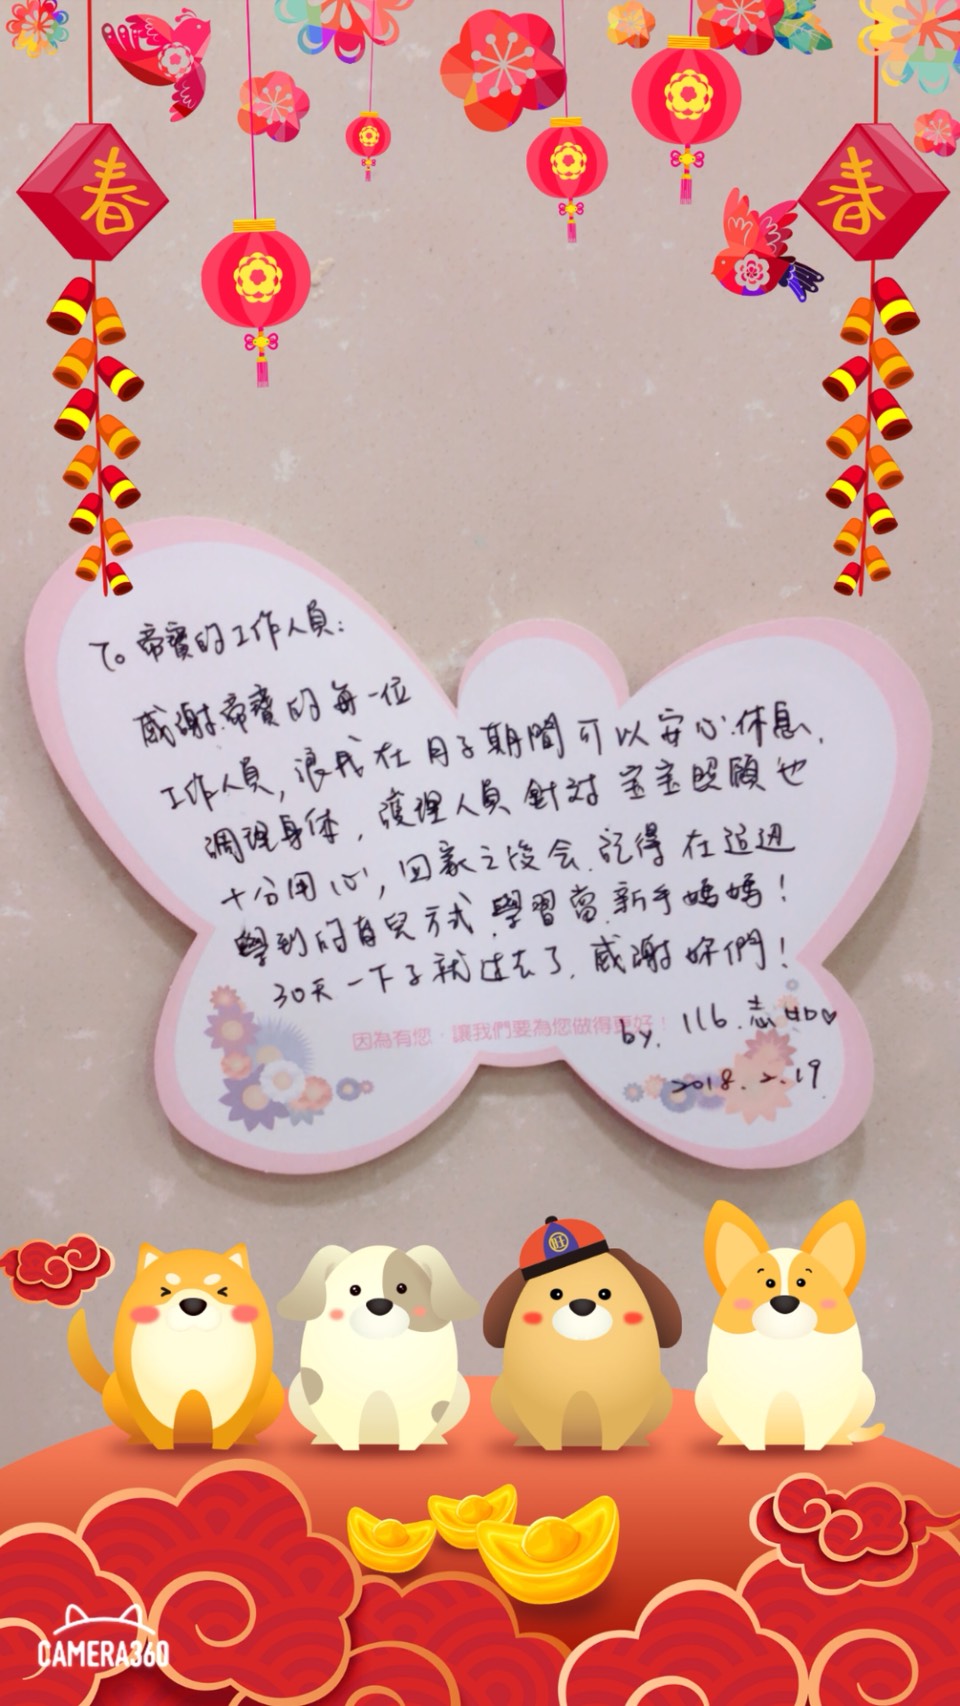 春
春
To 帝寶的工作人員:
感謝帝寶的每一位
工作人員,讓我在月子期間可以安心休息,
調理身体,護理人員針對宝宝照顧也
十分用心,回家之後会記得在這邊
學到的育兒方式,學習當新手媽媽!
30天一下子就過去了,感謝妳們!
因為有您,讓我們要為您做得更好!
by. 116.志
2018.2.19
旺
CAMERA360